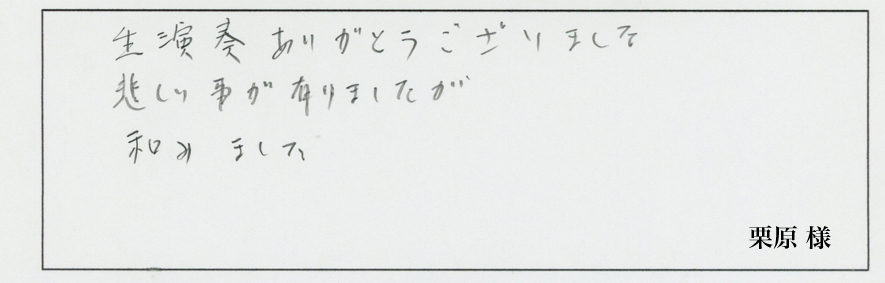 生演奏ありがとうございました
悲しい事が有りましたが
和みました
栗原 様